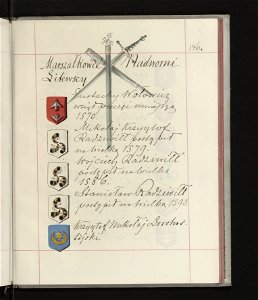 196.
Marszałkowie Nadworni
Litewscy
Eustachy Wołowicz
wziął pieczęć mniejszą
1570.
Mikołaj Krzysztof
Radziwiłł postąpił
na wielką 1579.
Wojciech Radziwiłł
postąpił na wielką
1586.
Stanisław Radziwiłł
postąpił na wielką 1593
Krzysztof Mikołaj Dorohos-
tajski